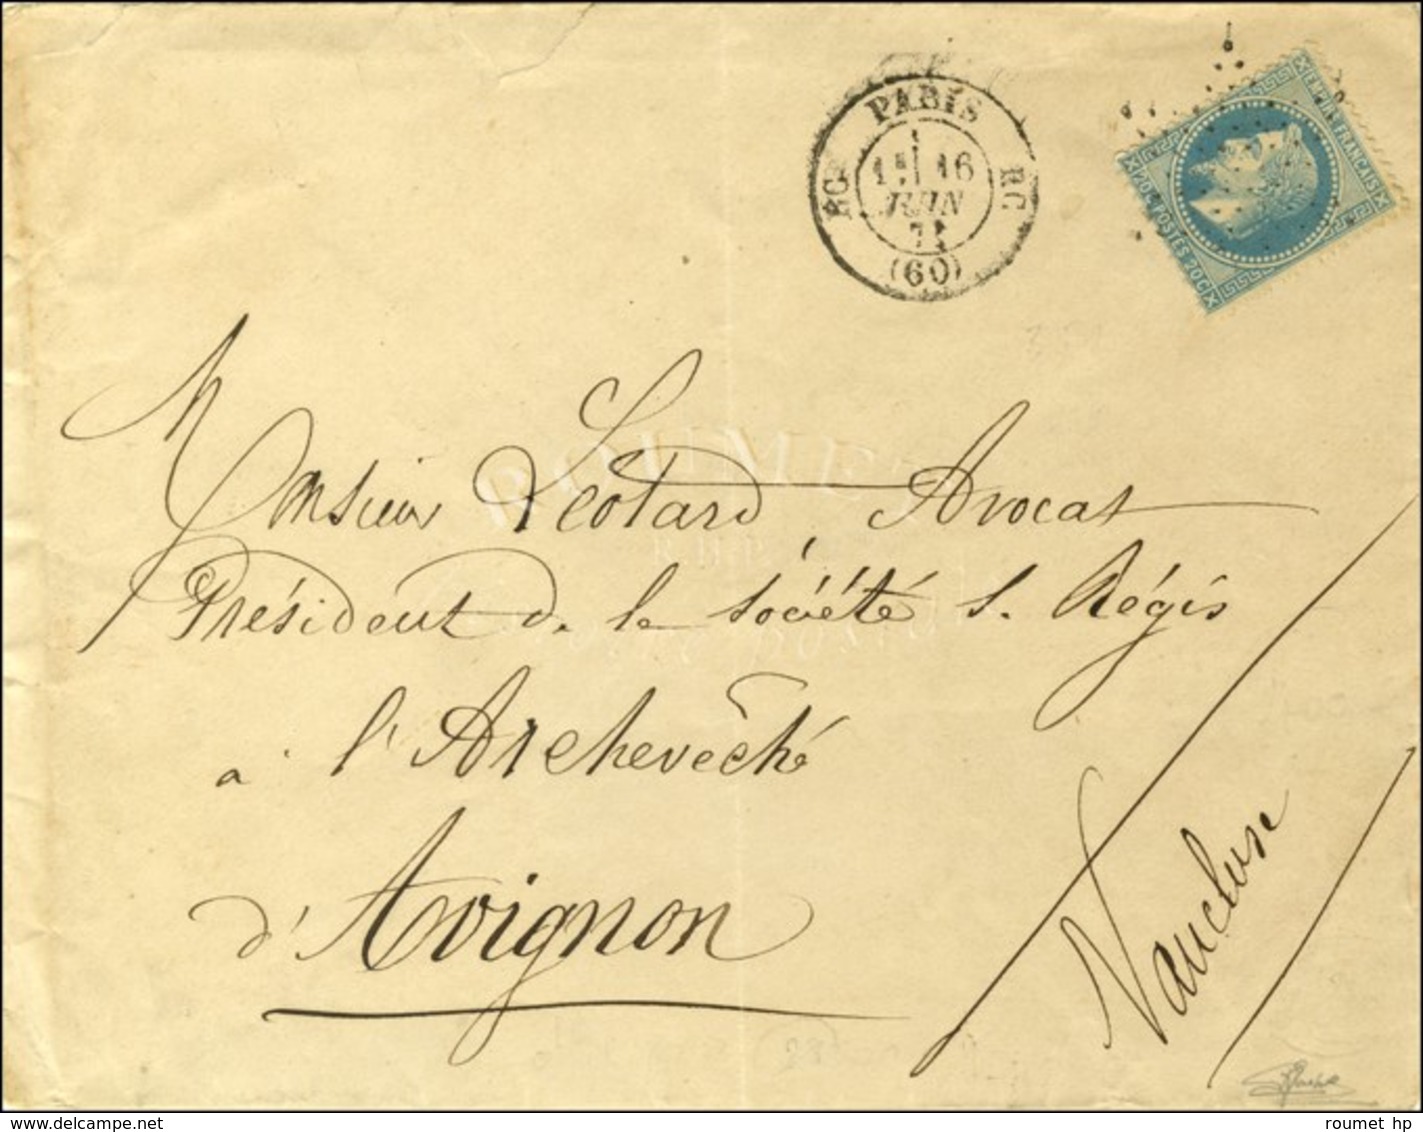 PARIS
1E 16
JUIN
71
(60)
EMPIRE FRANÇAIS
20C POSTES 20C
ROUMET
Monsieur Léotard Avocat
Président de la société S. Régis
à l'Archevêché
d'Avignon
Vaucluse
www.delcampe.net
roumet hp